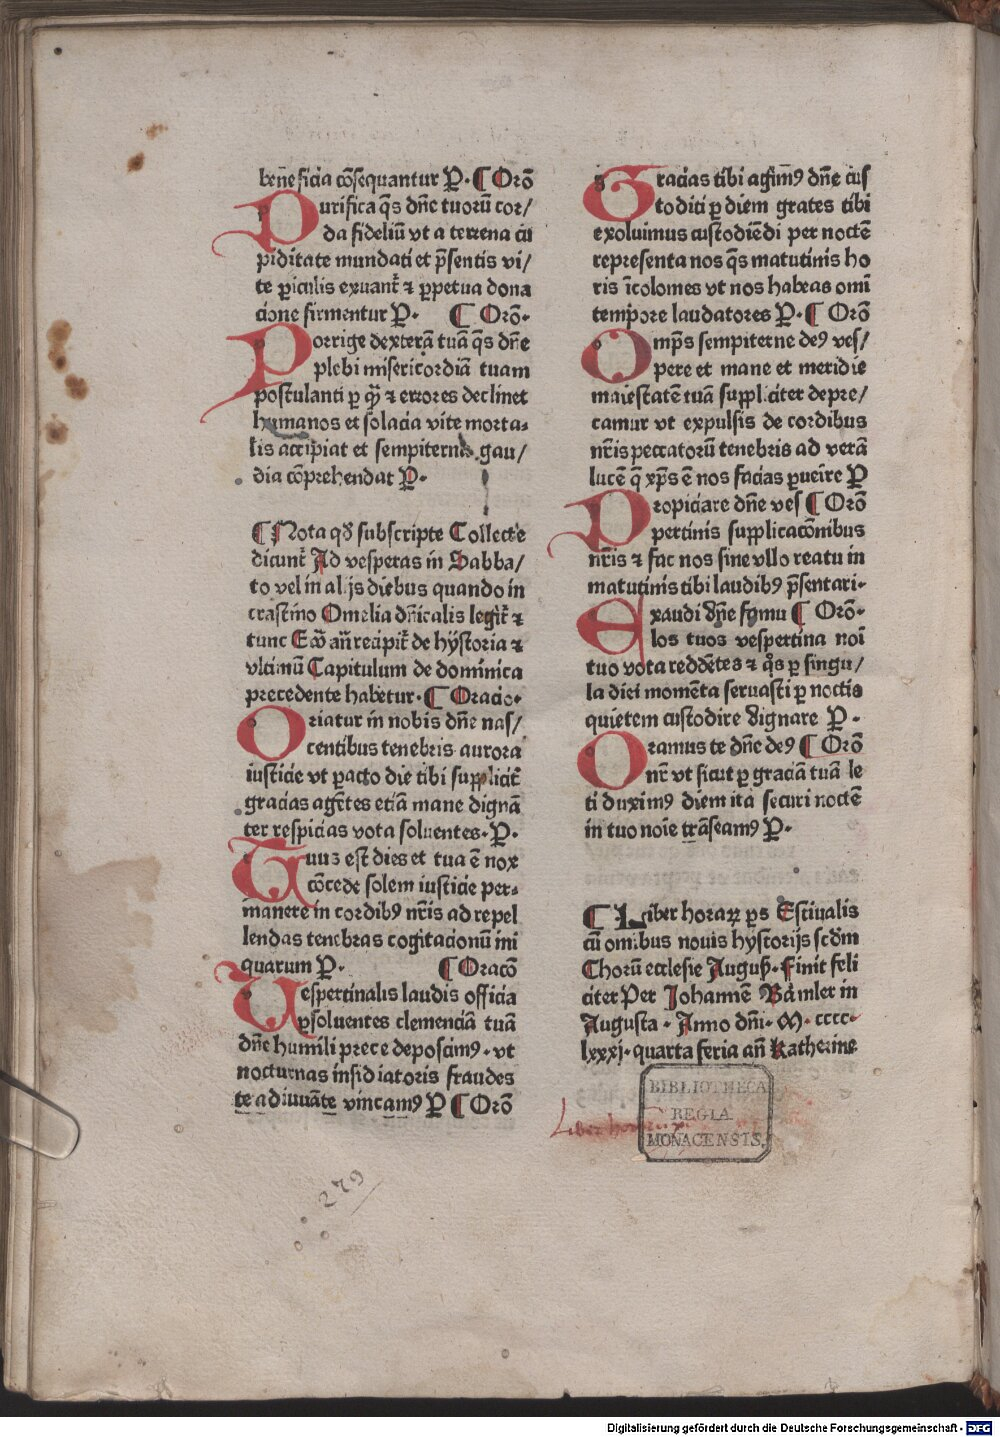 beneficia cōsequantur P̱· ¶ Orō
Purifica q̄s dn̄e tuorū cor/
da fideliū vt a terrena cu
piditate mundati et p̄sentis vi/
te ꝑiculis exuant᷑ ⁊ ꝑpetua dona
cione firmentur P̱· ¶ Orō·
Porrige dexterā tuā q̄s dn̄e
plebi misericordiā tuam
postulanti ꝑ quā ⁊ errores declinet
humanos et solacia vite morta⸗
lis accipiat et sempiterna gau/
dia cōprehendat P̱·
¶ Nota qđ subscripte Collecte
dicunt᷑ Ad vesperas in Sabba/
to vel in alijs diebus quando in
crastino Omelia dn̄icalis legit᷑ ⁊
tunc Ew̄ an̄ recipit᷑ de hystoria ⁊
vltimū Capitulum de dominica
precedente habetur· ¶ Oracio·
Oriatur in nobis dn̄e nas/
centibus tenebris aurora
iusticie vt ꝑacto die tibi supplicit᷑
gracias agētes etiā mane dignā
ter respicias vota soluentes· P̱·
Tuus est dies et tua ē nox
cōcede solem iusticie per⸗
manere in cordibꝰ nr̄is ad repel
lendas tenebras cogitacionū ini
quarum P̱· ¶ Oracō
Vespertinalis laudis officia
ꝑsoluentes clemenciā tuā
dn̄e humili prece deposcimꝰ· vt
nocturnas insidiatoris fraudes
te adiuuāte vincamꝰ P̱ ¶ Orō
Gracias tibi agim̄ꝰ dn̄e cus
toditi ꝑ diem grates tibi
exoluimus custodiēdi per noctē
representa nos q̄s matutinis ho
ris īcolomes vt nos habeas omī
tempore laudatores P̱· ¶ Orō
Omp̄s sempiterne deꝰ ves/
pere et mane et meridie
maiestatē tuā suppliciter depre/
camur vt expulsis de cordibus
nr̄is peccatorū tenebris ad verā
lucē q̄ xp̄s ē nos facias ꝑueīre P̱
Propiciare dn̄e ves ¶ Orō
pertinis supplicacōnibus
nr̄is ⁊ fac nos sine vllo reatu in
matutinis tibi laudibꝰ p̄sentari·
Exaudi dn̄e famu ¶ Orō·
los tuos vespertina noī
tuo vota reddētes ⁊ q̊s ꝑ singu/
la diei momēta seruasti ꝑ noctis
quietem custodire dignare P̱·
Oramus te dn̄e deꝰ ¶ Orō
nr̄ vt sicut ꝑ graciā tuā le
ti duximꝰ diem ita securi noctē
in tuo noīe trāseamꝰ P̱·
¶ Liber horaꝝ ps Estiualis
cū omībus nouis hystorijs scdm̄
Chorū ecclesie Augusꝭ· Finit feli
citer Per Johannē Bämler in
Augusta· Anno dn̄i· M· cccc·
lxxxj· quarta feria an̄ Katherine
Liber horarum
BIBLIOTHECA
REGIA
MONACENSIS.
279
Digitalisierung gefördert durch die Deutsche Forschungsgemeinschaft - DFG